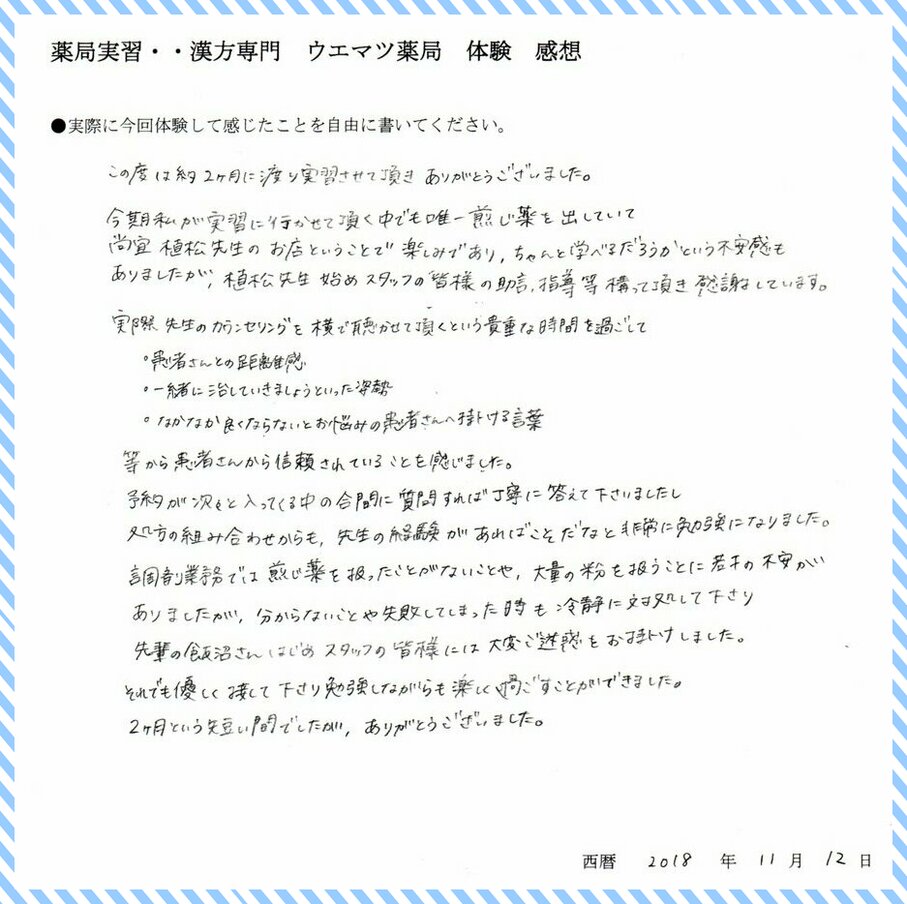 薬局実習・・漢方専門　ウエマツ薬局　体験　感想
●実際に今回体験して感じたことを自由に書いてください。
この度は約2ヶ月に渡り実習させて頂き ありがとうございました。
今期私が実習に行かせて頂く中でも唯一煎じ薬を出していて
尚宜 植松先生のお店ということで 楽しみであり，ちゃんと学べるだろうかという不安感も
ありましたが，植松先生 始め スタッフの皆様の助言，指導等 構って頂き 感謝しています。
実際 先生のカウンセリングを 横で聴かせて頂くという貴重な時間を過ごして
・患者さんとの距離感
・一緒に治していきましょうといった姿勢
・なかなか良くならないとお悩みの患者さんへ掛ける言葉
等から患者さんから信頼されていることを感じました。
予約が次々と入ってくる中の合間に質問すれば丁寧に答えて下さいましたし
処方の組み合わせからも，先生の経験があればこそだなと非常に勉強になりました。
調剤業務では煎じ薬を扱ったことがないことや，大量の粉を扱うことに若干の不安が
ありましたが，分からないことや失敗してしまった時も冷静に対処して下さり
先輩の飯沼さんはじめスタッフの皆様には大変ご迷惑をお掛けしました。
それでも優しく接して下さり勉強しながらも楽しく過ごすことができました。
2ヶ月という短い間でしたが，ありがとうございました。
西暦　2018　年　11　月　12　日